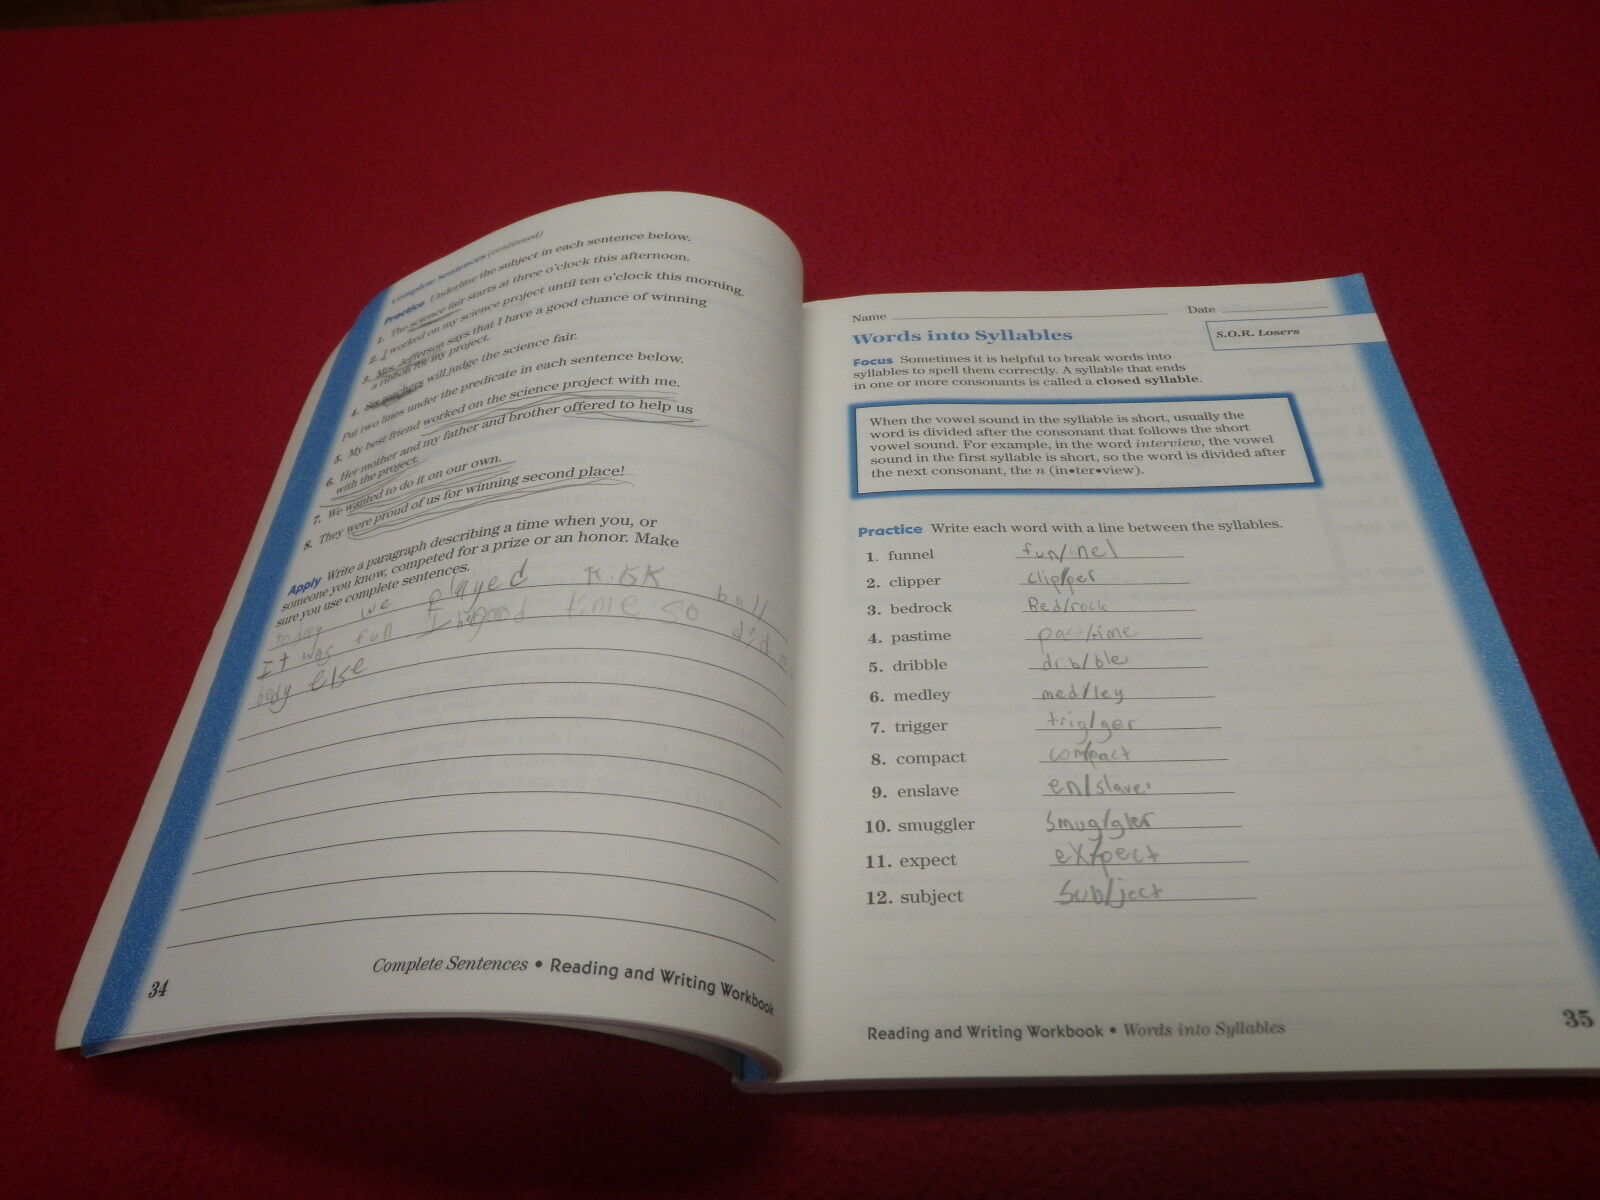 Complete Sentences (continued)
Practice Underline the subject in each sentence below.
1. The science fair starts at three o'clock this afternoon.
2. I worked on my science project until ten o'clock this morning.
3. Mrs. Jefferson says that I have a good chance of winning
a ribbon for my project.
4. Six teachers will judge the science fair.
Put two lines under the predicate in each sentence below.
5. My best friend worked on the science project with me.
6. Her mother and my father and brother offered to help us
with the project.
7. We wanted to do it on our own.
8. They were proud of us for winning second place!
Apply Write a paragraph describing a time when you, or
someone you know, competed for a prize or an honor. Make
sure you use complete sentences.
today we played kick ball
It was fun I had good time so did
body else
34
Complete Sentences • Reading and Writing Workbook
Name Date
Words into Syllables
S.O.R. Losers
Focus Sometimes it is helpful to break words into
syllables to spell them correctly. A syllable that ends
in one or more consonants is called a closed syllable.
When the vowel sound in the syllable is short, usually the
word is divided after the consonant that follows the short
vowel sound. For example, in the word interview, the vowel
sound in the first syllable is short, so the word is divided after
the next consonant, the n (in•ter•view).
Practice Write each word with a line between the syllables.
1. funnel fun/nel
2. clipper clip/per
3. bedrock Bed/rock
4. pastime pas/time
5. dribble drib/ble
6. medley med/ley
7. trigger trig/ger
8. compact com/pact
9. enslave en/slave
10. smuggler smug/gler
11. expect ex/pect
12. subject Sub/ject
Reading and Writing Workbook • Words into Syllables
35